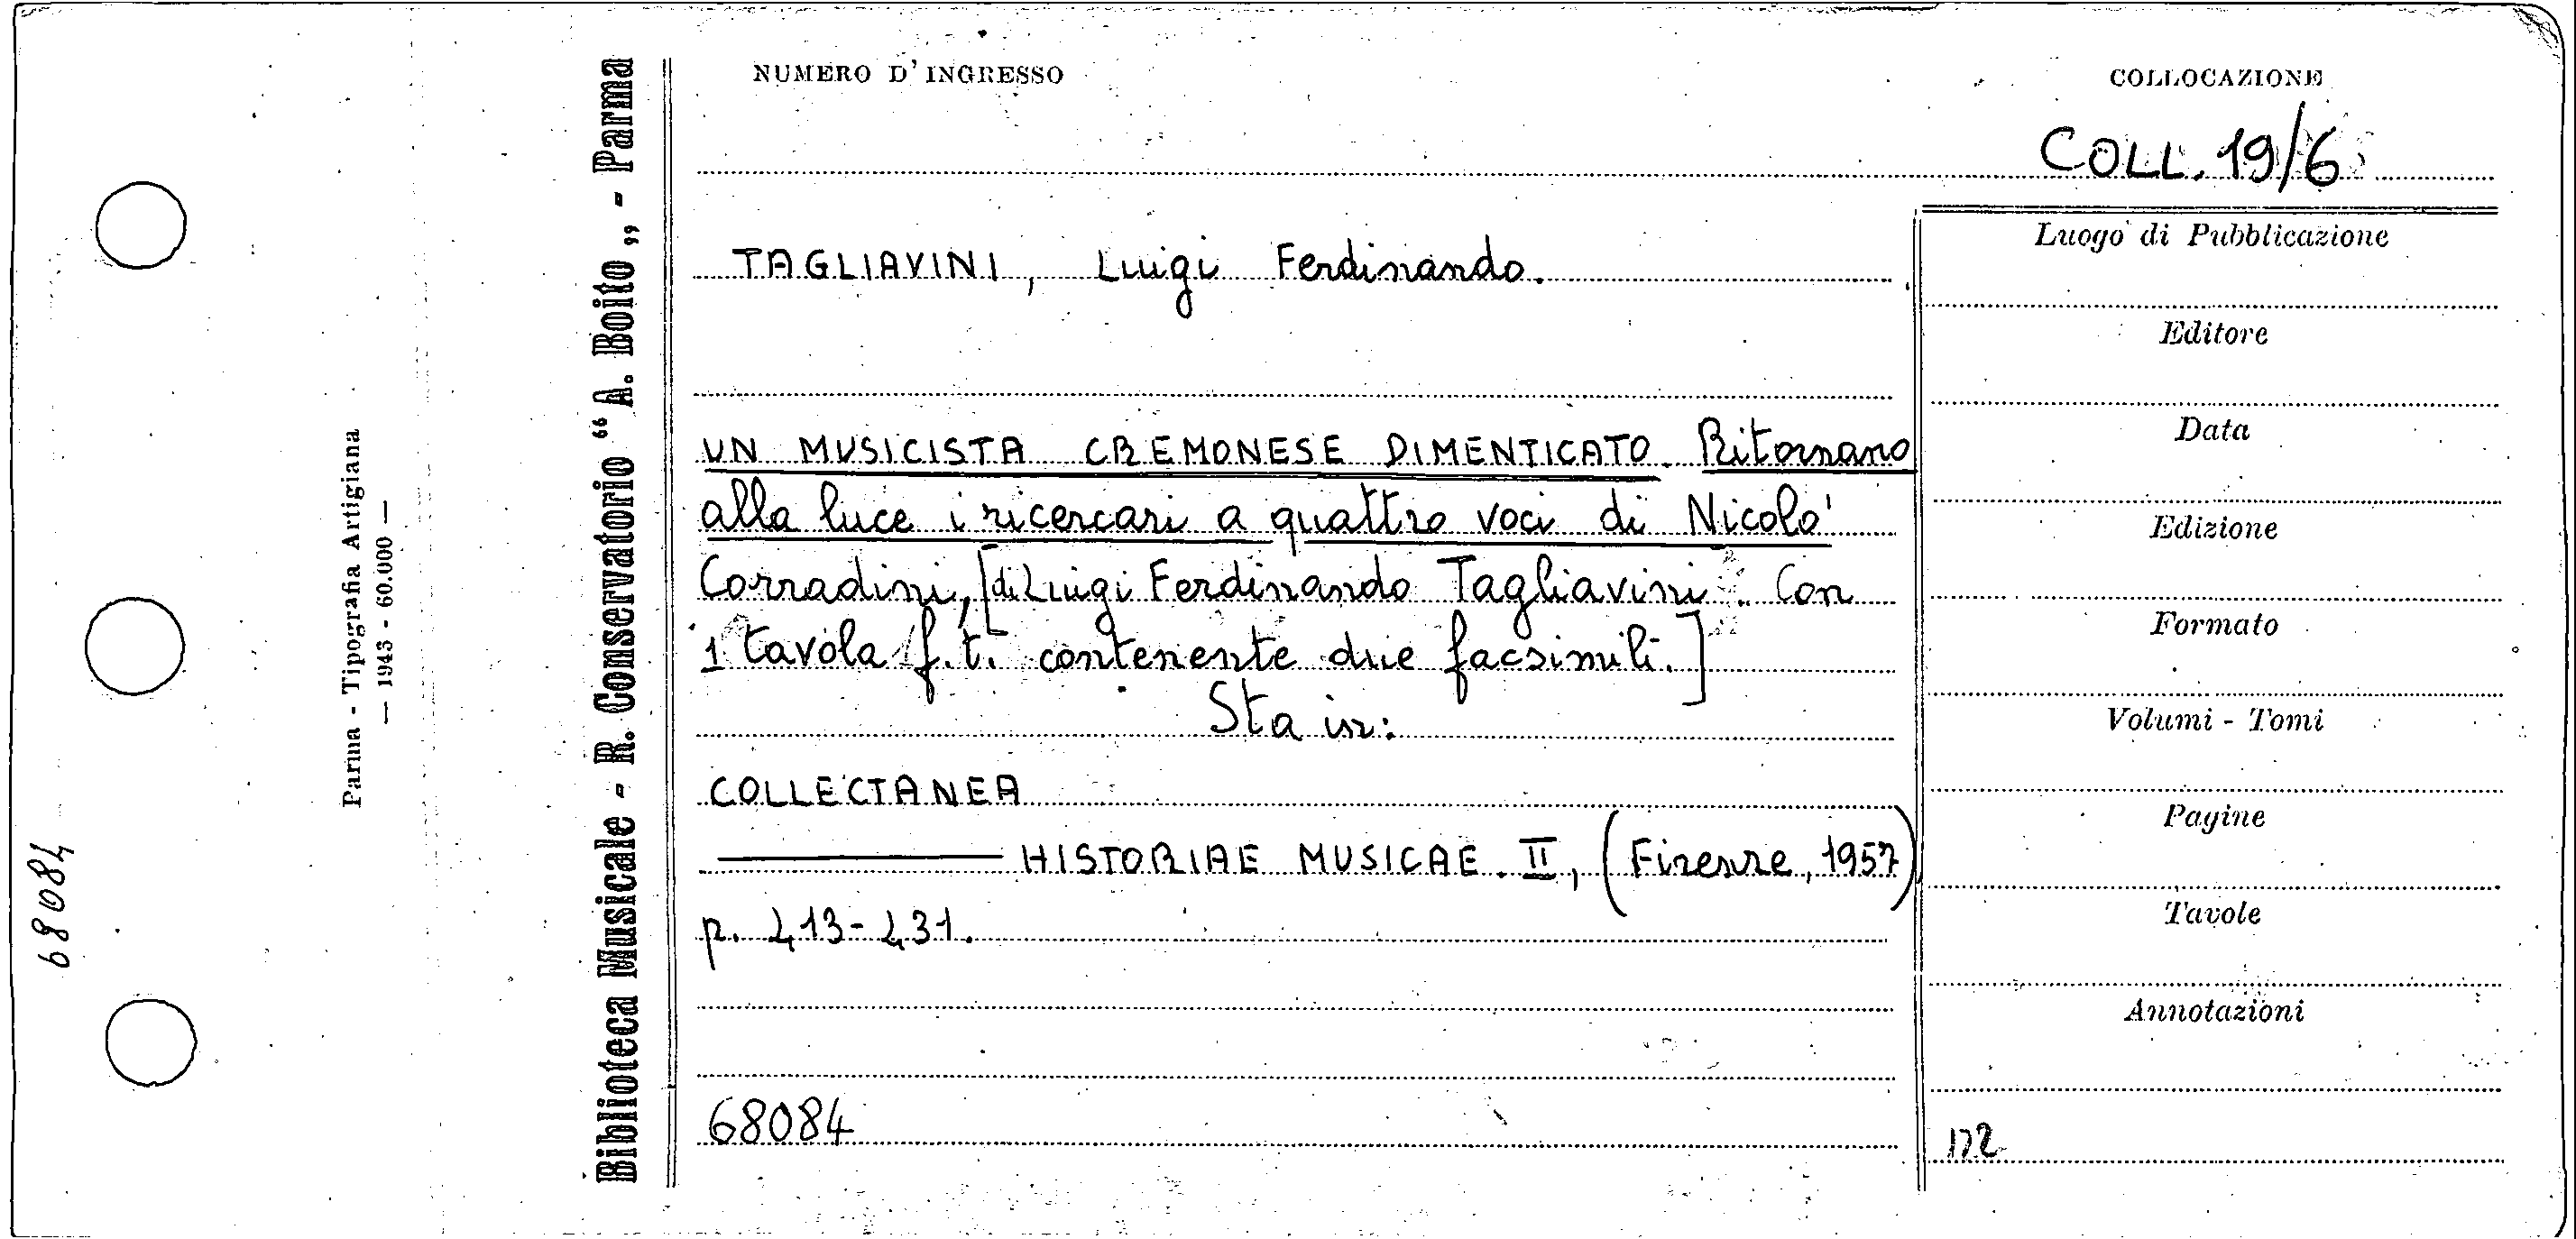 68084
Parma - Tipografia Artigiana
— 1943 - 60.000 —
Biblioteca Musicale - R. Conservatorio “A. Boito„ - Parma
NUMERO D'INGRESSO
COLLOCAZIONE
COLL. 19/6
TAGLIAVINI, Luigi Ferdinando.
UN MUSICISTA CREMONESE DIMENTICATO. Ritornano
alla luce i ricercari a quattro voci di Nicolo'
Corradini, [di Luigi Ferdinando Tagliavini. Con
1 tavola f.t. contenente due facsimili.]
Sta in:
COLLECTANEA
——— HISTORIAE MUSICAE. II, (Firenze, 1957)
p. 413-431.
68084
Luogo di Pubblicazione
Editore
Data
Edizione
Formato
Volumi - Tomi
Pagine
Tavole
Annotazioni